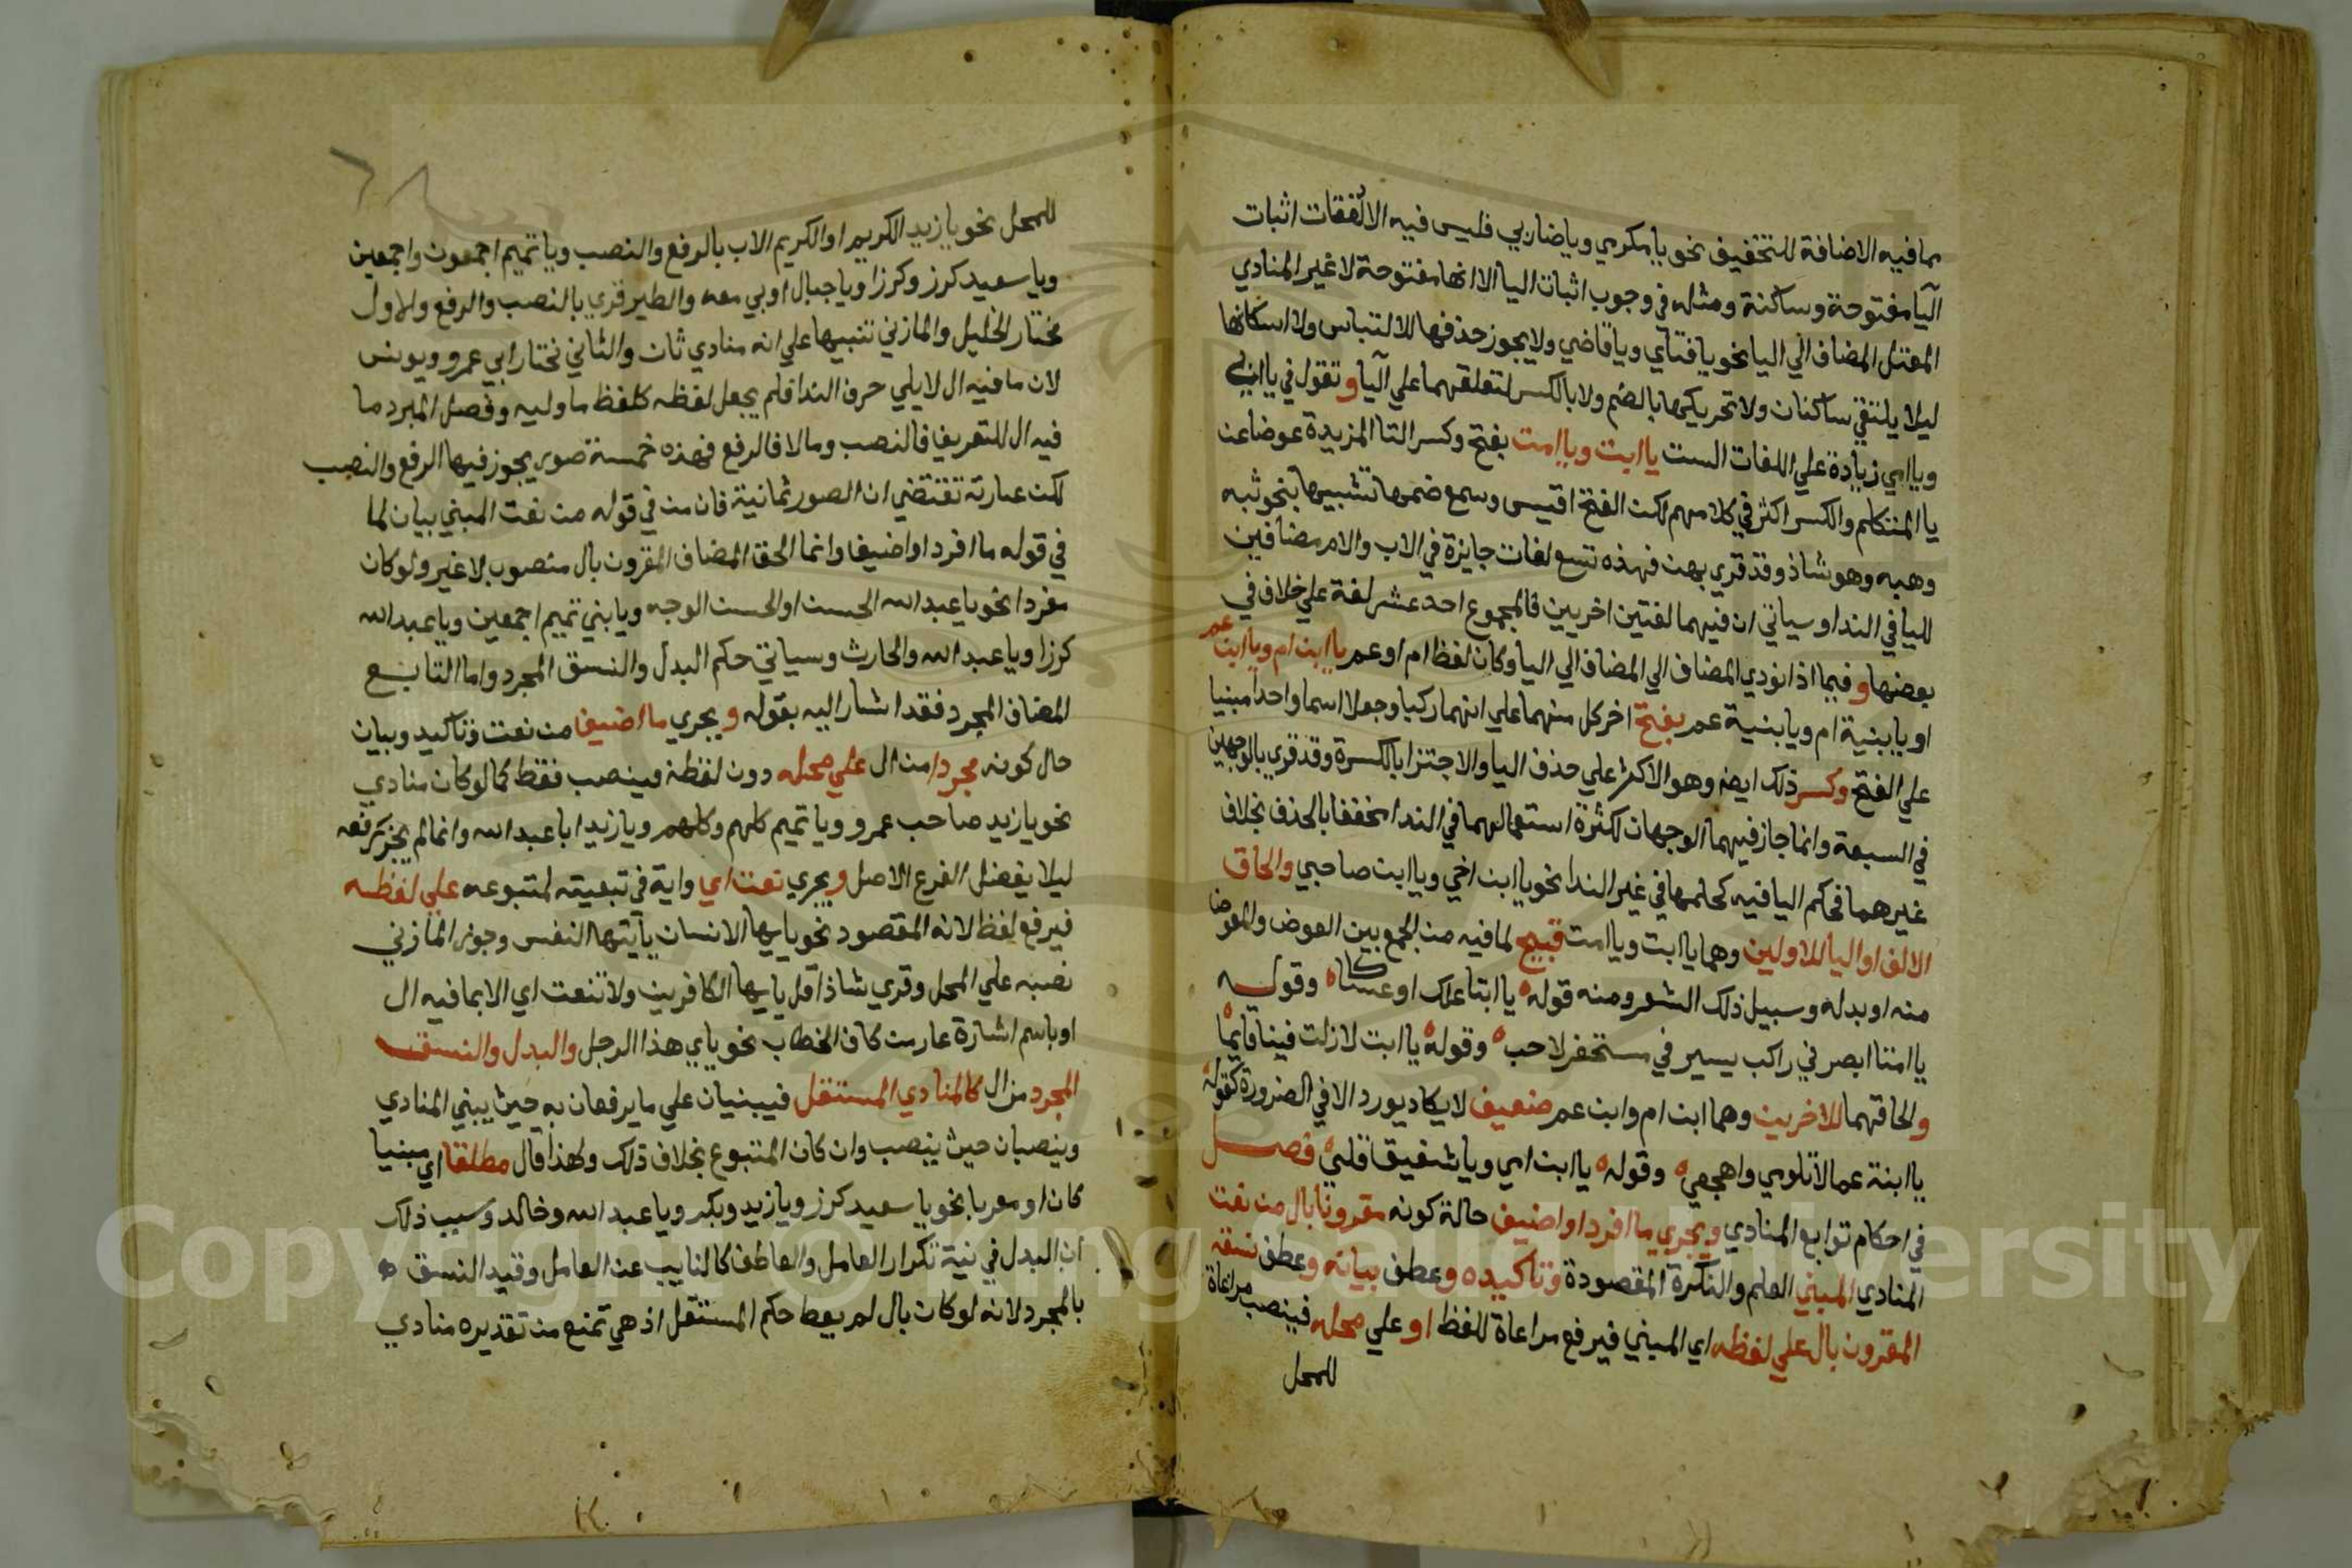 مما فيه الاضافة للتخفيف نحو يا مكرمي ويا ضاربي فليس فيه الا لغتان اثبات
اليا مفتوحة وساكنة ومثله في وجوب اثبات اليا الا انها مفتوحة لا غير المنادي
المعتل المضاف الي اليا نحو يا فتاي ويا قاضي ولا يجوز حذفها للالتباس ولا اسكانها
ليلا يلتقي ساكنان ولا تحريكها بالضم ولا بالكسر لثقلهما علي اليا وتقول في يا ابي
ويا امي زيادة علي اللغات الست يا ابت ويا امت بفتح وكسر التا المزيدة عوضا عن
يا المتكلم والكسر اكثر في كلامهم لكن الفتح اقيس وسمع ضمها تشبيها بنحو ثبه
وهبه وهو شاذ وقد قري بهن فهذه تسع لغات جايزة في الاب والام مضافين
لليا في الندا وسياتي ان فيهما لغتين اخريين فالمجموع احد عشر لغة علي خلاف في
بعضها وفيما اذا نودي المضاف الي المضاف الي اليا وكان لفظ ام او عم يا ابن ام ويا ابن عم
او يا ابنية ام ويا ابنية عم بفتح اخر كل منهما علي انهما ركبا وجعلا اسما واحدا مبنيا
علي الفتح وكسر ذلك ايضا وهو الاكثر علي حذف اليا والاجتزا بالكسرة وقد قري بالوجهين
في السبعة وانما جاز فيهما الوجهان لكثرة استعمالهما في الندا مخففا بالحذف بخلاف
غيرهما فحكم اليا فيه كحكمها في غير الندا نحو يا ابن اخي ويا ابن صاحبي والحاق
الالف او اليا للاولين وهما يا ابت ويا امت قبيح لما فيه من الجمع بين العوض والمعوض
منه او بدله وسبيل ذلك الشعر ومنه قوله يا ابتا علك او عساكا وقوله
يا امتا ابصرني راكب يسير في مسحنفر لاحب وقوله يا ابت لا زلت فينا فانما
والحاقهما للاخرين وهما ابن ام وابن عم ضعيف لا يكاد يورد الا في الضرورة كقوله
يا ابنة عما لا تلومي واهجعي وقوله يا ابن امي ويا شقيق قلبي فصل
في احكام توابع المنادي ويجري ما افرد او اضيف حالة كونه مقرونا بال من نعت
المنادي المبني العلم والنكرة المقصودة وتاكيده وعطف بيانه وعطف نسقه
المقرون بال علي لفظه اي المبني فيرفع مراعاة للفظ او علي محله فينصب مراعاة
للمحل
للمحل نحو يا زيد الكريم او الكريم الاب بالرفع والنصب ويا تميم اجمعون واجمعين
ويا سعيد كرز وكرزا ويا جبال اوبي معه والطير قري بالنصب والرفع والاول
مختار الخليل والمازني تنبيها علي انه منادي ثان والثاني نختار ابي عمرو ويونس
لان ما فيه ال لا يلي حرف الندا فلم يجعل لفظه كلفظ ما وليه وفصل المبرد ما
فيه ال للتعريف فالنصب وما لا فالرفع فهذه خمسة صور يجوز فيها الرفع والنصب
لكن عبارته تقتضي ان الصور ثمانية فان من في قوله من نعت المبني بيان لما
في قوله ما افرد او اضيف وانما الحق المضاف المقرون بال منصوب لا غير ولو كان
مفردا نحو يا عبد الله الحسن او الحسن الوجه ويا بني تميم اجمعين ويا عبد الله
كرزا ويا عبد الله والحارث وسياتي حكم البدل والنسق المجرد واما التابع
المضاف المجرد فقد اشار اليه بقوله ويجري ما اضيف من نعت وتاكيد وبيان
حال كونه مجردا من ال علي محله دون لفظه فينصب فقط كما لو كان منادي
نحو يا زيد صاحب عمرو ويا تميم كلهم وكلهم ويا زيد ابا عبد الله وانما لم يجز رفعه
ليلا يفضل الفرع الاصل ويجري نعت اي واية في تبعيته لمتبوعه علي لفظه
فيرفع لفظ لانه المقصود نحو يا ايها الانسان يا ايتها النفس وجوز المازني
نصبه علي المحل وقري شاذا قل يا ايها الكافرين ولا تنعت اي الا بما فيه ال
او باسم اشارة عار من كاف الخطاب نحو يا اي هذا الرجل والبدل والنسق
المجرد من ال كالمنادي المستقل فيبنيان علي ما يرفعان به حيث يبني المنادي
وينصبان حيث ينصب وان كان المتبوع بخلاف ذلك ولهذا قال مطلقا اي مبنيا
كان او معربا نحو يا سعيد كرز ويا زيد وبكر ويا عبد الله وخالد وسبب ذلك
ان البدل في نية تكرار العامل والعاطف كالنايب عن العامل وقيد النسق
بالمجرد لانه لو كان بال لم يعط حكم المستقل اذ هي تمنع من تقديره منادي
Copyright © King Saud University